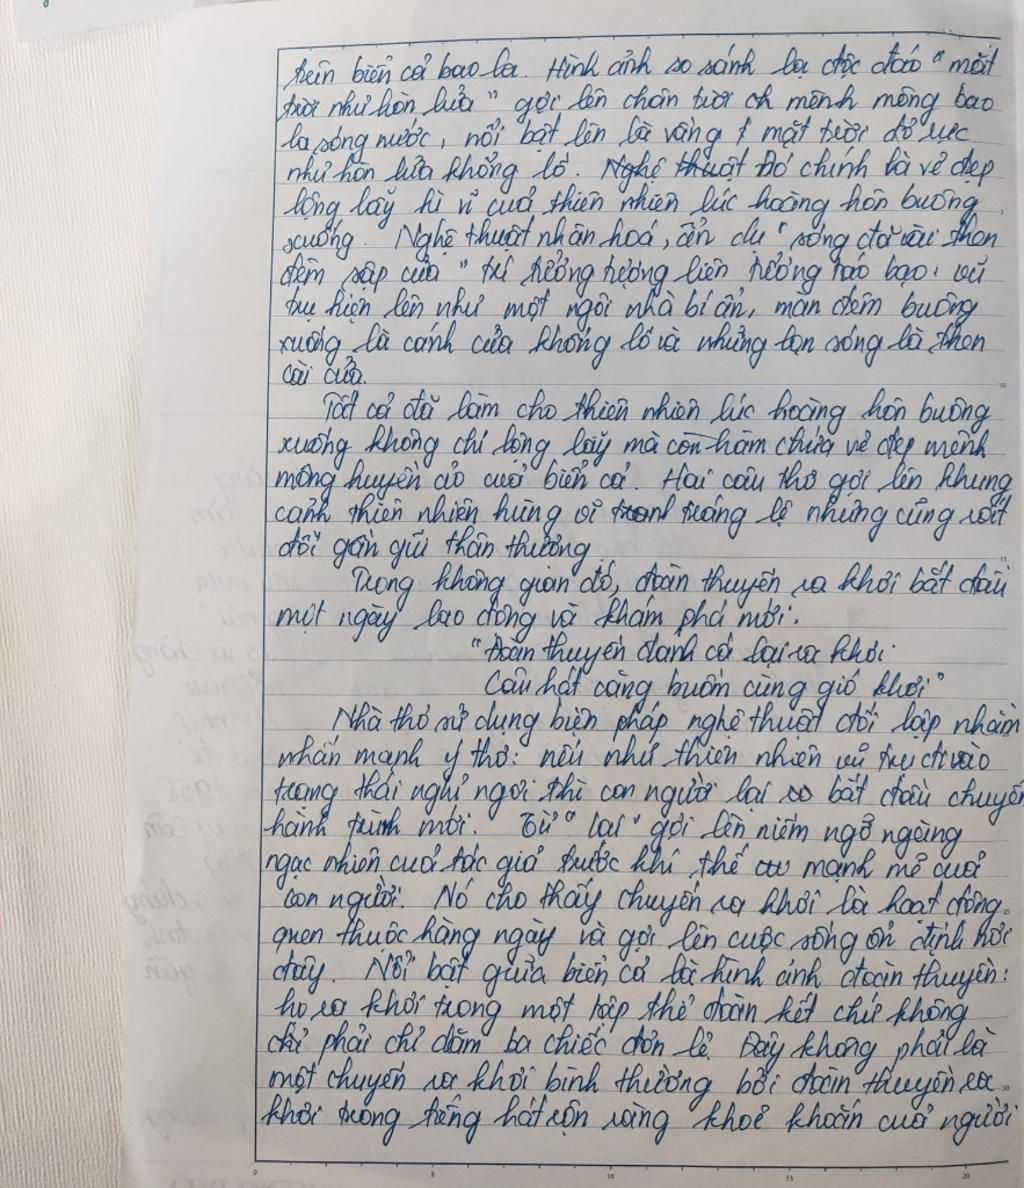 trên biển cả bao la. Hình ảnh so sánh lạ độc đáo "mặt
trời như hòn lửa" gợi lên chân trời mênh mông bao
la sóng nước, nổi bật lên là vầng mặt trời đỏ rực
như hòn lửa khổng lồ. Nghệ thuật Đó chính là vẻ đẹp
lộng lẫy kì vĩ của thiên nhiên lúc hoàng hôn buông
xuống. Nghệ thuật nhân hoá, ẩn dụ "sóng đã cài then
đêm sập cửa" trí tưởng tượng liên tưởng táo bạo: vũ
trụ hiện lên như một ngôi nhà bí ẩn, màn đêm buông
xuống là cánh cửa khổng lồ và những lọn sóng là then
cài cửa.
Tất cả đã làm cho thiên nhiên lúc hoàng hôn buông
xuống không chỉ lộng lẫy mà còn hàm chứa vẻ đẹp mênh
mông huyền ảo của biển cả. Hai câu thơ gợi lên khung
cảnh thiên nhiên hùng vĩ tranh tráng lệ nhưng cũng rất
đỗi gần gũi thân thương.
Trong không gian đó, đoàn thuyền ra khơi bắt đầu
một ngày lao động và khám phá mới.
"Đoàn thuyền đánh cá lại ra khơi
Câu hát căng buồm cùng gió khơi"
Nhà thơ sử dụng biện pháp nghệ thuật đối lập nhằm
nhấn mạnh ý thơ: nếu như thiên nhiên vũ trụ đi vào
trạng thái nghỉ ngơi thì con người lại bắt đầu chuyến
hành trình mới. Từ "lại" gợi lên niềm ngỡ ngàng
ngạc nhiên của tác giả trước khí thế mạnh mẽ của
con người. Nó cho thấy chuyến ra khơi là hoạt động
quen thuộc hàng ngày và gợi lên cuộc sống ổn định nơi
đây. Nổi bật giữa biển cả là hình ảnh đoàn thuyền:
họ ra khơi trong một tập thể đoàn kết chứ không
chỉ phải chỉ dăm ba chiếc đơn lẻ. Đây không phải là
một chuyến ra khơi bình thường bởi đoàn thuyền ra
khơi trong tiếng hát rộn ràng khoẻ khoắn của người